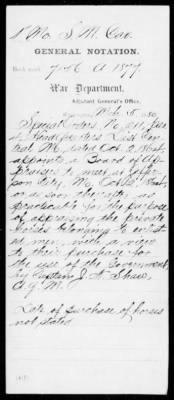 1 Mo. S. M. Cav.
GENERAL NOTATION.
Book mark: 7136 A 1879
War Department,
Adjutant General's Office,
Special Orders No.
Headquarters Dist Cen-
tral Mo, dated Oct. 2, 1862,
appoints a Board of Ap-
praisers to meet at Jeffer-
son City, Mo, Oct.
or as soon thereafter as
practicable for the purpose
of appraising the private
horses belonging to enlist-
ed men, with a view
to their purchase for
the use of the Government
by Captain J. A. Shaw,
A. Q. M.
Date of purchase of horses
not stated